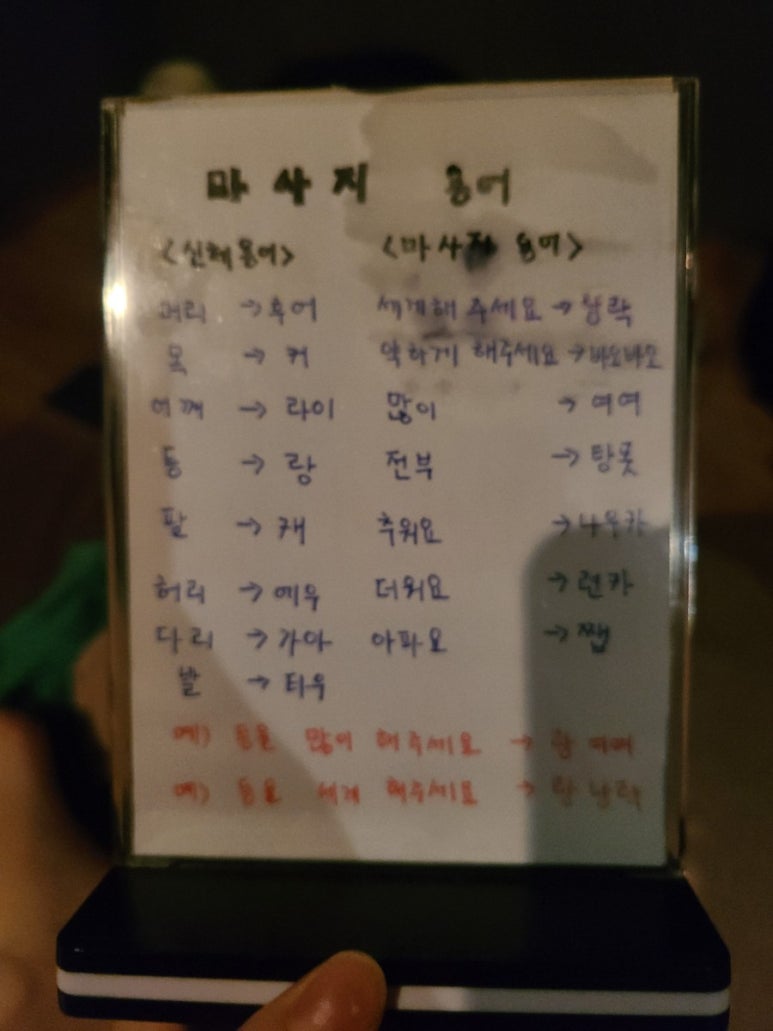 마사지 용어
<신체용어> <마사지 용어>
머리 → 후어 세게해 주세요 → 낭락
목 → 커 약하게 해주세요 → 바오바오
어깨 → 라이 많이 → 여여
등 → 랑 전부 → 탕못
팔 → 캐 추워요 → 나우카
허리 → 에우 더워요 → 런카
다리 → 가아 아파요 → 쨉
발 → 티우
예) 등을 많이 해주세요 → 랑 여여
예) 등을 세게 해주세요 → 랑 낭락